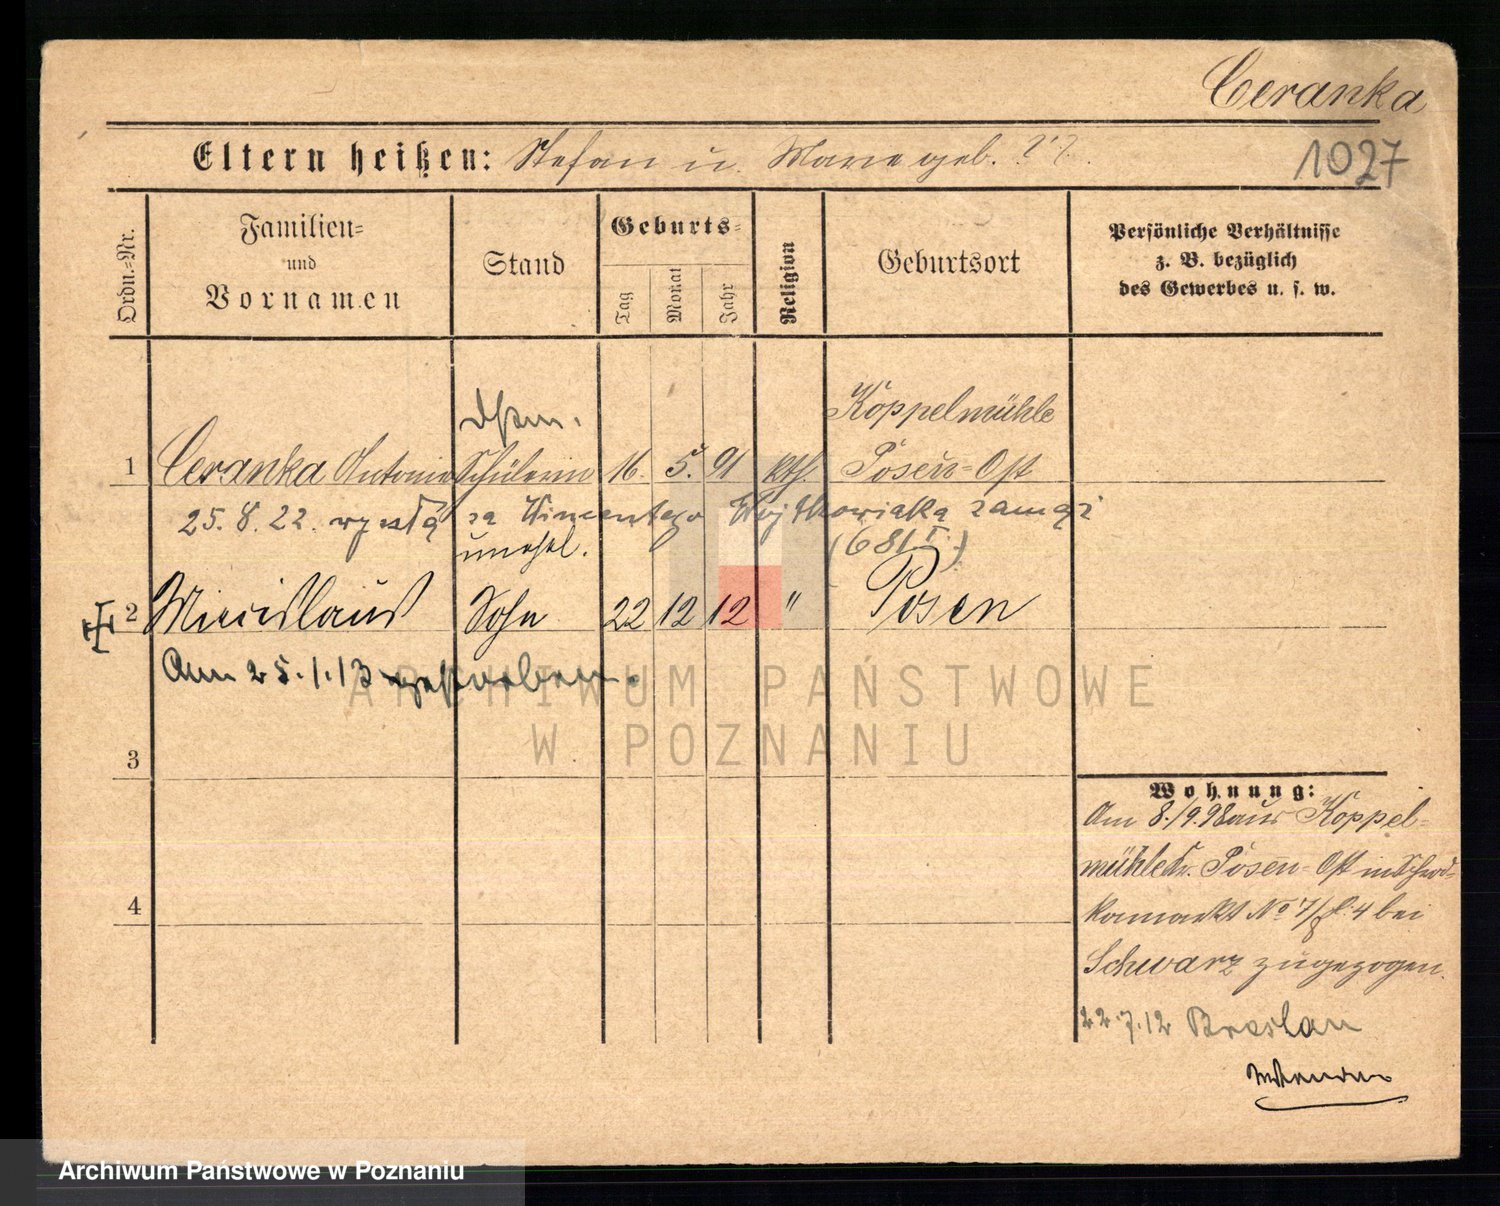 Ceranka
Eltern heißen: Stefan u. Marie geb. ??.
1027
Ordn.-Nr.
Familien-
und
Vornamen
Stand
Geburts-
Tag
Monat
Jahr
Religion
Geburtsort
Persönliche Verhältnisse
z. B. bezüglich
des Gewerbes u. s. w.
Koppelmühle
1 Ceranka Antonie Schülerin 16. 5. 91 kth. Posen-Ost
25.8.22. wyszła za Wincentego Wojtkowiaka zamąż
unehel. (681 I.)
2 Miecislaus Sohn 22 12 12 " Posen
Am 25.1.13 gestorben.
3
4
Wohnung:
Am 8./9.98 aus Koppel-
mühle Kr. Posen-Ost in Schrod-
kamarkt No 7/8 b. 4 bei
Schwarz zugezogen.
22.7.12 Breslau
ARCHIWUM PAŃSTWOWE
W POZNANIU
Archiwum Państwowe w Poznaniu